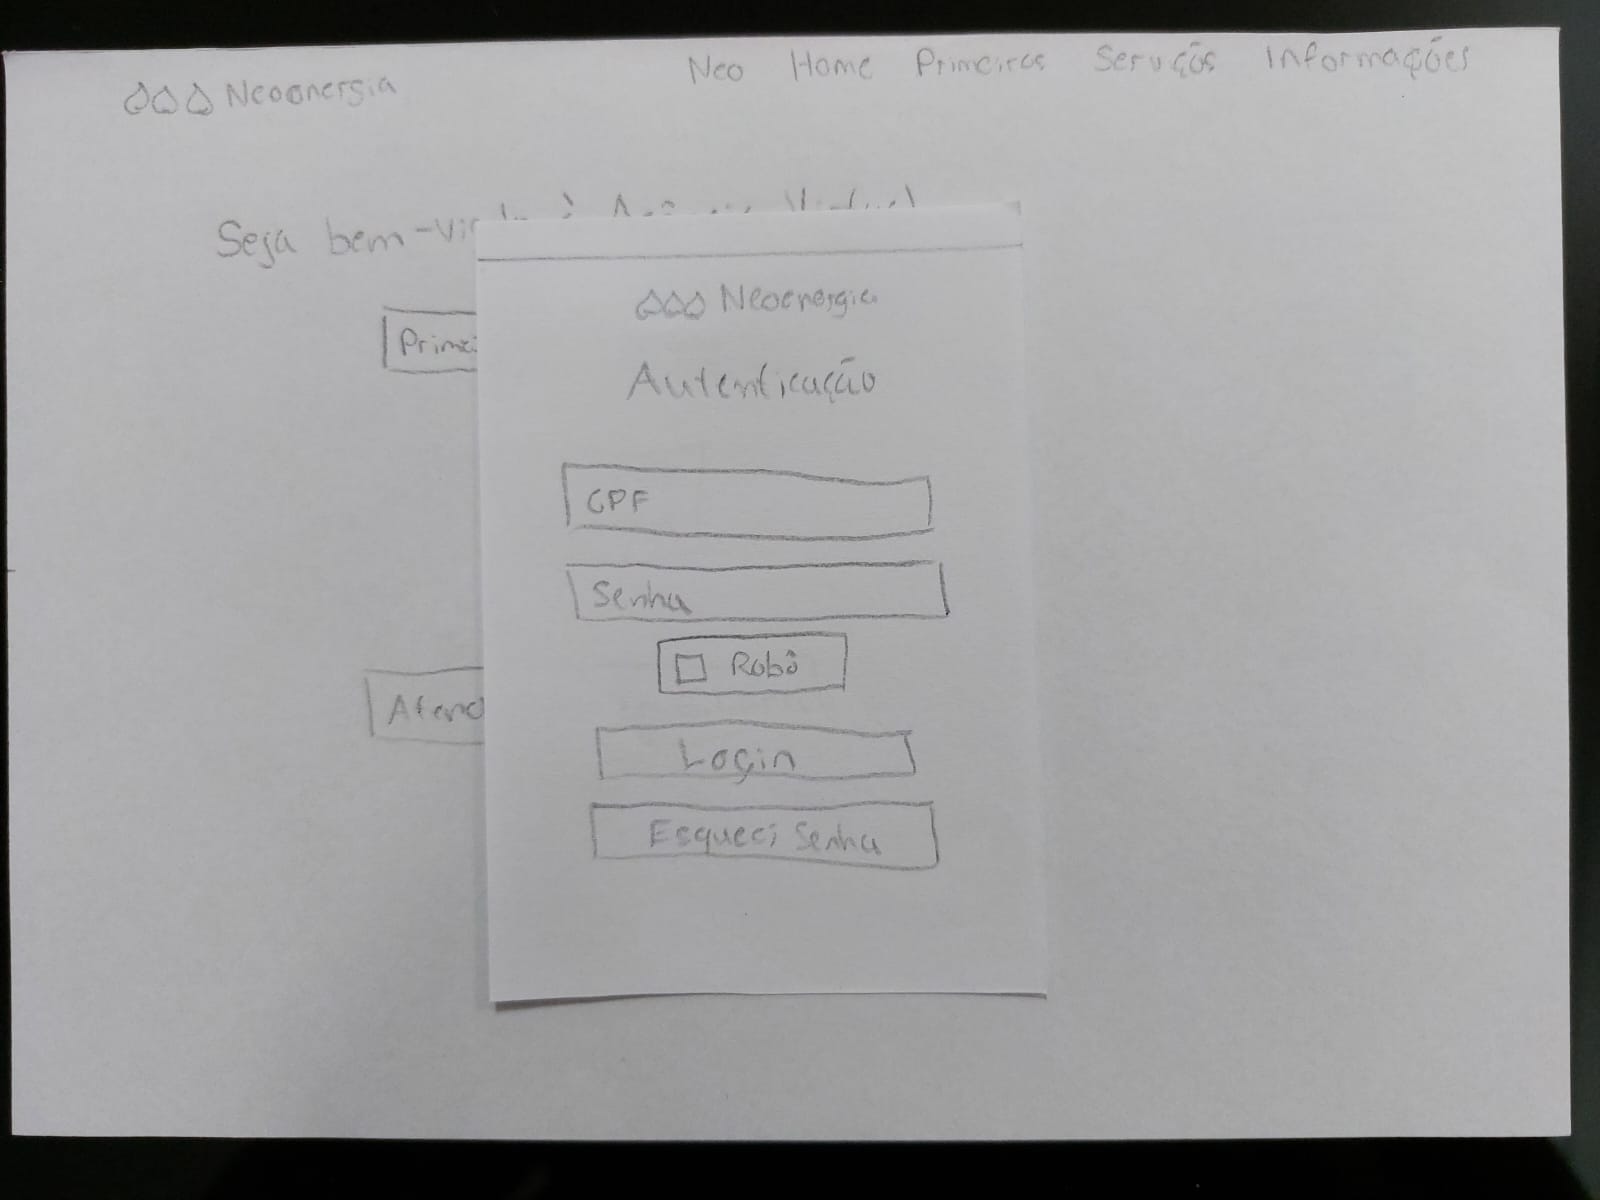 Neoenergia
Neo Home Primeiros Serviços Informações
Seja bem-vindo à Agência Virtual
Neoenergia
Autenticação
CPF
Senha
Robô
Login
Esqueci Senha